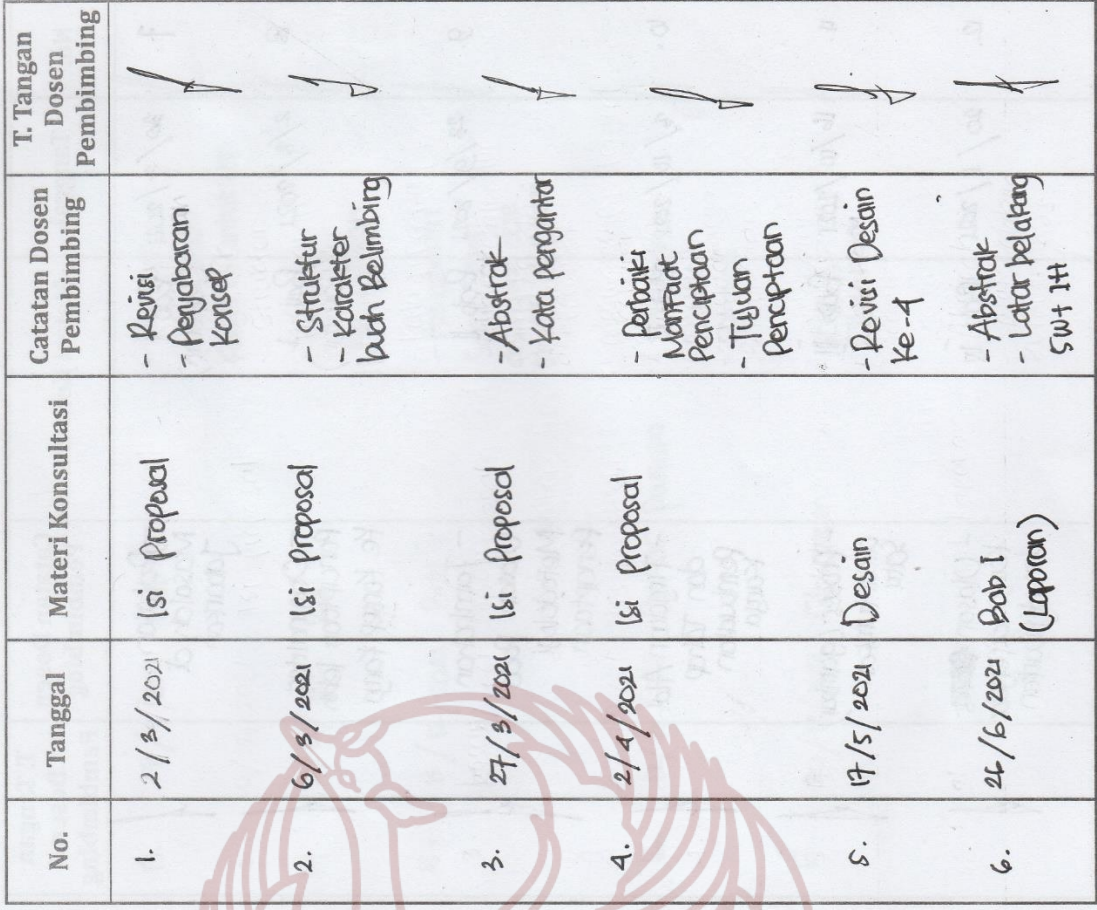 No.
Tanggal
Materi Konsultasi
Catatan Dosen
Pembimbing
T. Tangan
Dosen
Pembimbing
1.
2/3/2021
Isi Proposal
- Revisi
- Penjabaran
Konsep
2.
6/3/2021
Isi Proposal
- Struktur
- Karakter
buah Belimbing
3.
27/3/2021
Isi Proposal
- Abstrak
- Kata pengantar
4.
2/4/2021
Isi Proposal
- Perbaiki
Manfaat
Penciptaan
- Tujuan
Penciptaan
5.
17/5/2021
Desain
- Revisi Desain
Ke-4
6.
26/6/2021
Bab I
(Laporan)
- Abstrak
- Latar belakang
5W+1H